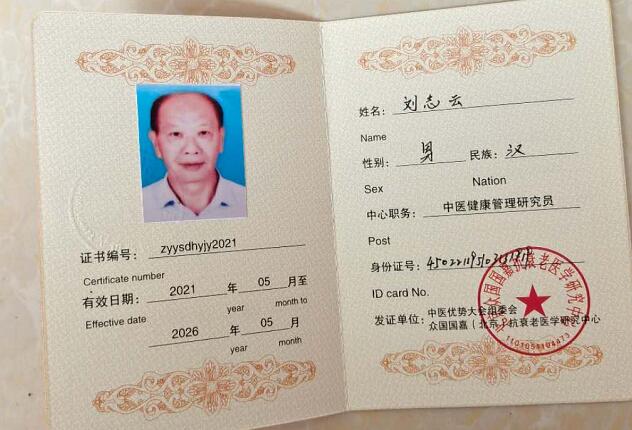 证书编号： zyysdhyjy2021
Certificate number
有效日期： 2021 年 05 月至
year month to
Effective date
2026 年 05 月
year month
姓名： 刘志云
Name
性别： 男 民族： 汉
Sex Nation
中心职务： 中医健康管理研究员
Post
身份证号：
ID card No.
发证单位： 中医优势大会组委会
众国国嘉（北京）抗衰老医学研究中心